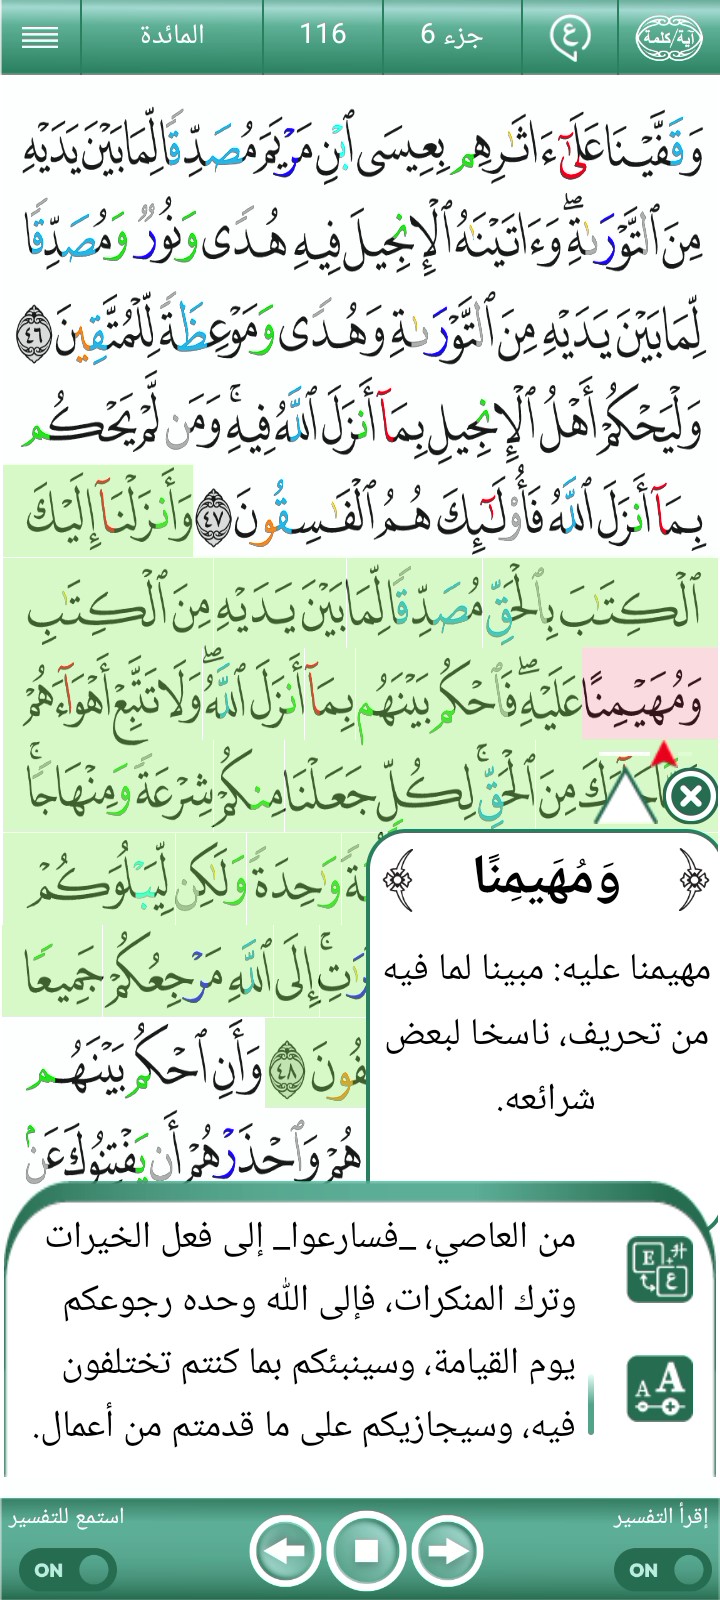 المائدة
116
جزء 6
ع
آية/كلمة
وَقَفَّيْنَا عَلَىٰٓ ءَاثَٰرِهِم بِعِيسَى ٱبْنِ مَرْيَمَ مُصَدِّقًا لِّمَا بَيْنَ يَدَيْهِ
مِنَ ٱلتَّوْرَىٰةِۖ وَءَاتَيْنَٰهُ ٱلْإِنجِيلَ فِيهِ هُدًى وَنُورٌ وَمُصَدِّقًا
لِّمَا بَيْنَ يَدَيْهِ مِنَ ٱلتَّوْرَىٰةِ وَهُدًى وَمَوْعِظَةً لِّلْمُتَّقِينَ ٤٦
وَلْيَحْكُمْ أَهْلُ ٱلْإِنجِيلِ بِمَآ أَنزَلَ ٱللَّهُ فِيهِۚ وَمَن لَّمْ يَحْكُم
بِمَآ أَنزَلَ ٱللَّهُ فَأُو۟لَٰٓئِكَ هُمُ ٱلْفَٰسِقُونَ ٤٧ وَأَنزَلْنَآ إِلَيْكَ
ٱلْكِتَٰبَ بِٱلْحَقِّ مُصَدِّقًا لِّمَا بَيْنَ يَدَيْهِ مِنَ ٱلْكِتَٰبِ
وَمُهَيْمِنًا عَلَيْهِۖ فَٱحْكُم بَيْنَهُم بِمَآ أَنزَلَ ٱللَّهُۖ وَلَا تَتَّبِعْ أَهْوَآءَهُمْ
مِنَ ٱلْحَقِّۚ لِكُلٍّ جَعَلْنَا مِنكُمْ شِرْعَةً وَمِنْهَاجًاۚ
وَٰحِدَةً وَلَٰكِن لِّيَبْلُوَكُمْ
إِلَى ٱللَّهِ مَرْجِعُكُمْ جَمِيعًا
٤٨ وَأَنِ ٱحْكُم بَيْنَهُم
وَٱحْذَرْهُمْ أَن يَفْتِنُوكَ عَنۢ
وَمُهَيمِنًا
مهيمنا عليه: مبينا لما فيه
من تحريف، ناسخا لبعض
شرائعه.
من العاصي، _فسارعوا_ إلى فعل الخيرات
وترك المنكرات، فإلى الله وحده رجوعكم
يوم القيامة، وسينبئكم بما كنتم تختلفون
فيه، وسيجازيكم على ما قدمتم من أعمال.
E ع
A A
استمع للتفسير
إقرأ التفسير
ON
ON